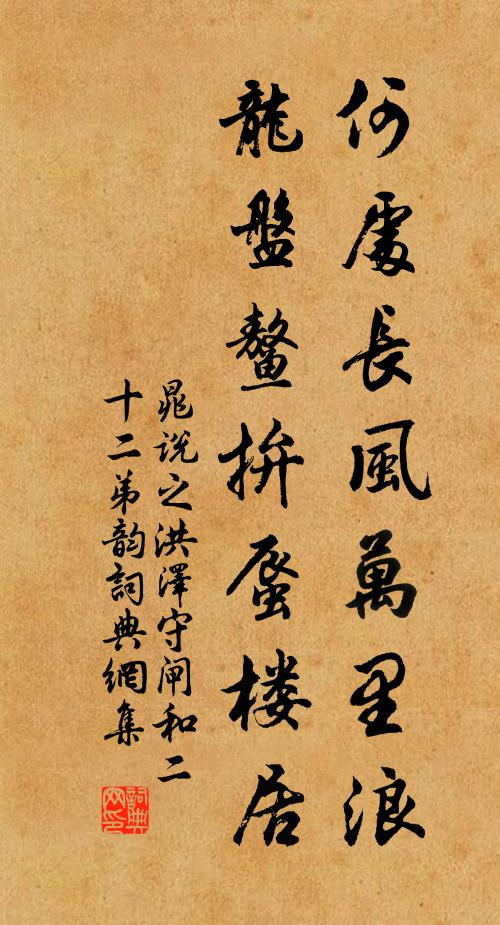 何處長風萬里浪
龍盤鰲抃蜃楼居
晁説之洪澤守闸和二
十二弟韵詞典網集
詞典网印